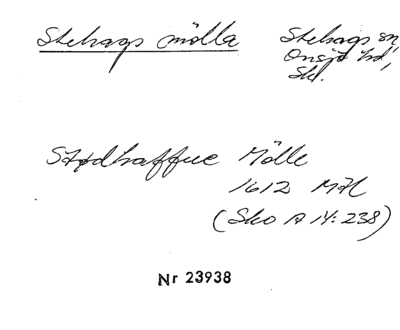 Stehags mölla
Stehags sn
Onsjö hd,
Sk.
Stødhaffue Mölle
1612 MH
(Sko A IV: 238)
Nr 23938